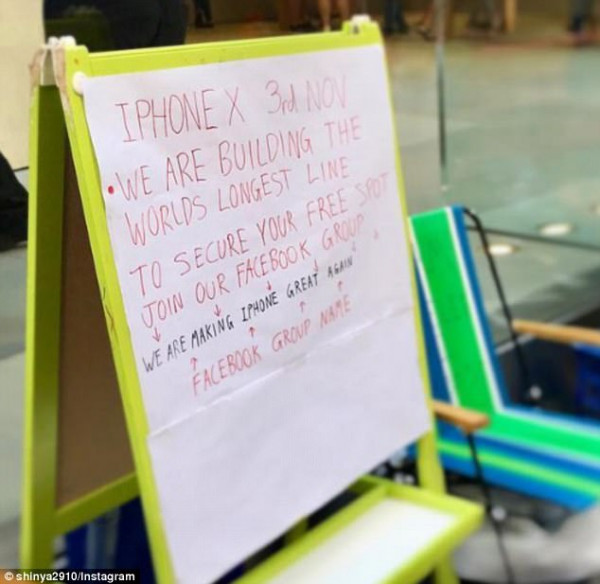 IPHONE X 3rd NOV
• WE ARE BUILDING THE
WORLDS LONGEST LINE
TO SECURE YOUR FREE SPOT
JOIN OUR FACEBOOK GROUP
↓ ↓ ↓ ↓ ↓
WE ARE MAKING IPHONE GREAT AGAIN
↑ ↑ ↑ ↑
FACEBOOK GROUP NAME
© shinya2910/Instagram